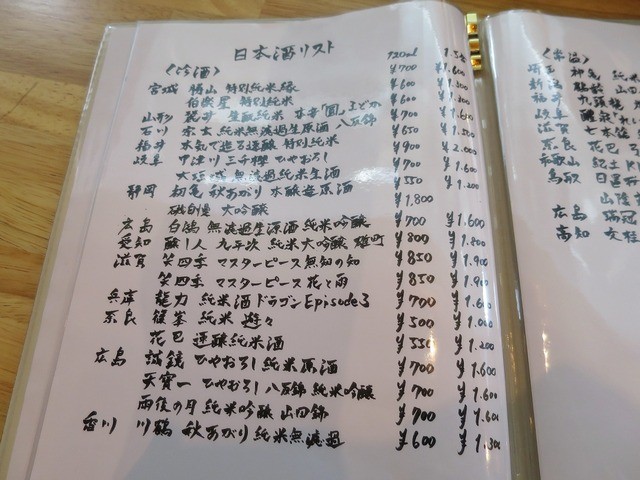 日本酒リスト
120ml
〈冷酒〉
宮城 特別純米 ¥700 ¥1.600
伯楽星 特別純米 ¥600
山形 生酛純米 ¥700
石川 宗玄 純米無濾過生原酒 八反錦 ¥650
福井 本気で造る 特別純米 ¥900 ¥2.000
岐阜 中津川 三千櫻 ひやおろし ¥700 ¥1.600
無濾過純米生酒 ¥550 ¥1.200
静岡 初亀 秋あがり 本醸造原酒
磯自慢 大吟醸 ¥1.800
広島 白鴻 無濾過生原酒 純米吟醸 ¥700 ¥1.600
愛知 醸し人 九平次 純米大吟醸 雄町 ¥800 ¥1.800
滋賀 笑四季 マスターピース 無知の知 ¥850 ¥1.900
笑四季 マスターピース 花と雨 ¥850 ¥1.900
兵庫 龍力 純米酒 ドラゴンEpisode3 ¥700 ¥1.600
奈良 篠峯 純米 遊々 ¥500 ¥1.000
花巴 速醸純米酒 ¥550 ¥1.200
広島 誠鏡 ひやおろし 純米原酒 ¥700 ¥1.600
天寳一 ひやおろし 八反錦 純米吟醸 ¥700 ¥1.600
雨後の月 純米吟醸 山田錦 ¥700 ¥1.600
香川 川鶴 秋あがり 純米無濾過 ¥600
〈常温〉
埼玉 神亀 純米
新潟
福井 九頭龍
滋賀 七本鎗
奈良 花巴
和歌山 紀土
鳥取 日置桜
広島
高知 文佳